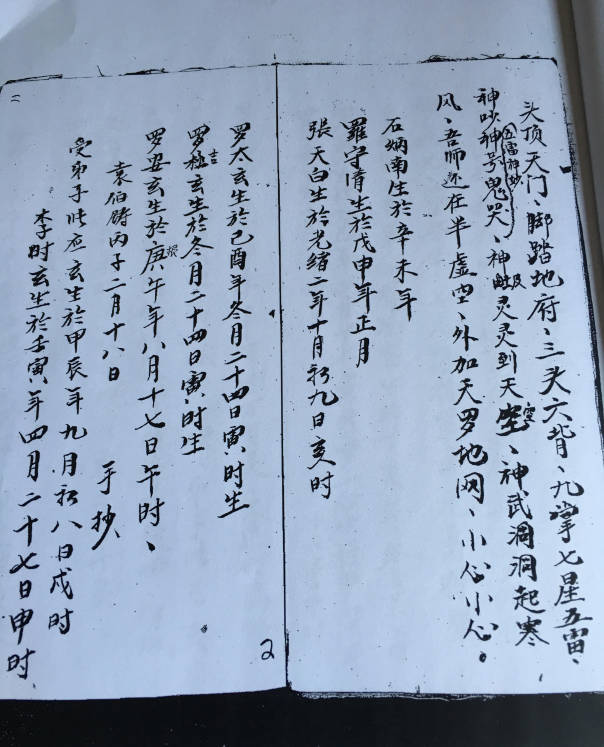 头顶天门、脚踏地府、三头六背、九掌七星五雷、
五雷神妙
神吹神号鬼哭、神灵灵到天空、神武洞洞起寒
空
风、吾师还在半虚空、外加天罗地网、小心小心。
石炳南生於辛未年
羅守清生於戊申年正月
張天白生於光緒二年十月初九日亥时
罗太玄生於己酉年冬月二十四日寅时生
罗极玄生於冬月二十四日寅时生
罗毋玄生於庚午年八月十七日午时、
袁伯铸丙子二月十八日
手抄
受弟子玄生於甲辰年九月初八日戌时
李时玄生於壬寅年四月二十七日申时、
2
二